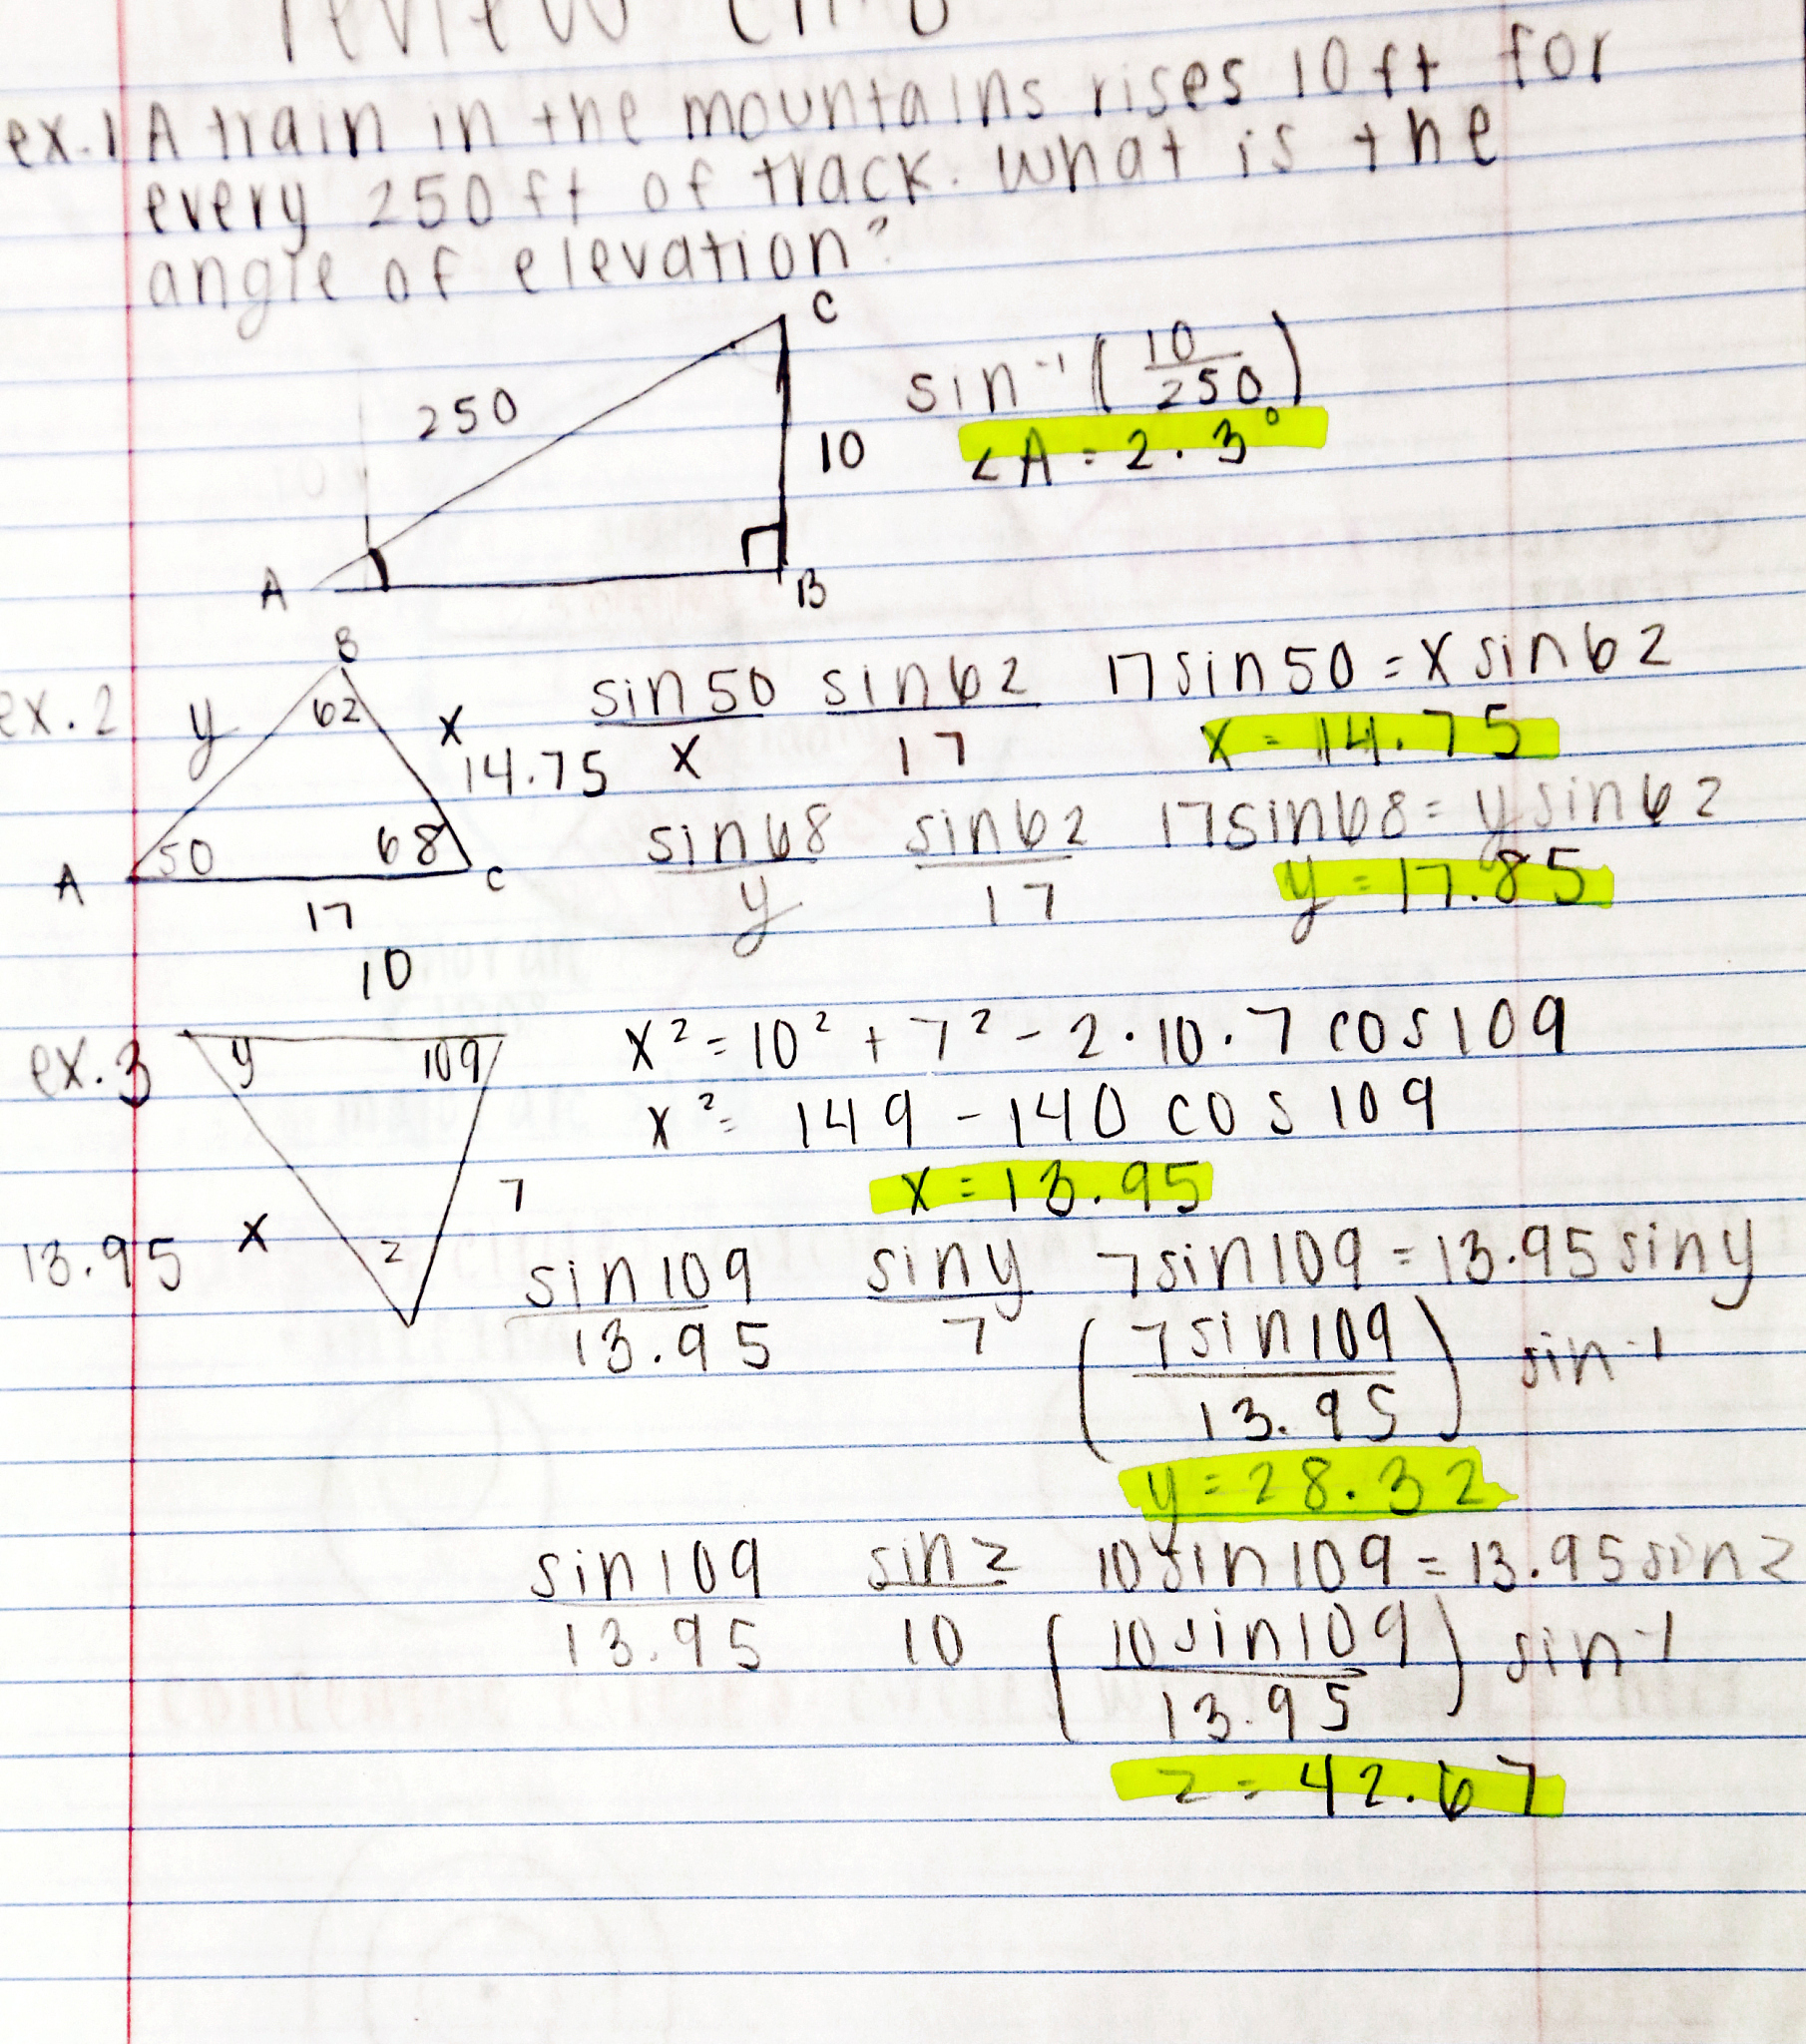 review
ex.1 A train in the mountains rises 10ft for
every 250ft of track. What is the
angle of elevation?
C
250
sin⁻¹ (10/250)
10
∠A = 2.3°
A
B
ex.2
B
y
62
x
14.75
50
68
A
C
17
sin50/x sin62/17 17sin50 = x sin62
x = 14.75
sin68/y sin62/17 17sin68 = y sin62
y = 17.85
10
ex.3
y
109
7
x
13.95
z
x² = 10² + 7² - 2·10·7 cos109
x² = 149 - 140 cos109
x = 13.95
sin109/13.95 siny/7 7sin109 = 13.95siny
(7sin109/13.95) sin⁻¹
y = 28.32
sin109/13.95 sinz/10 10sin109 = 13.95sinz
(10sin109/13.95) sin⁻¹
z = 42.67